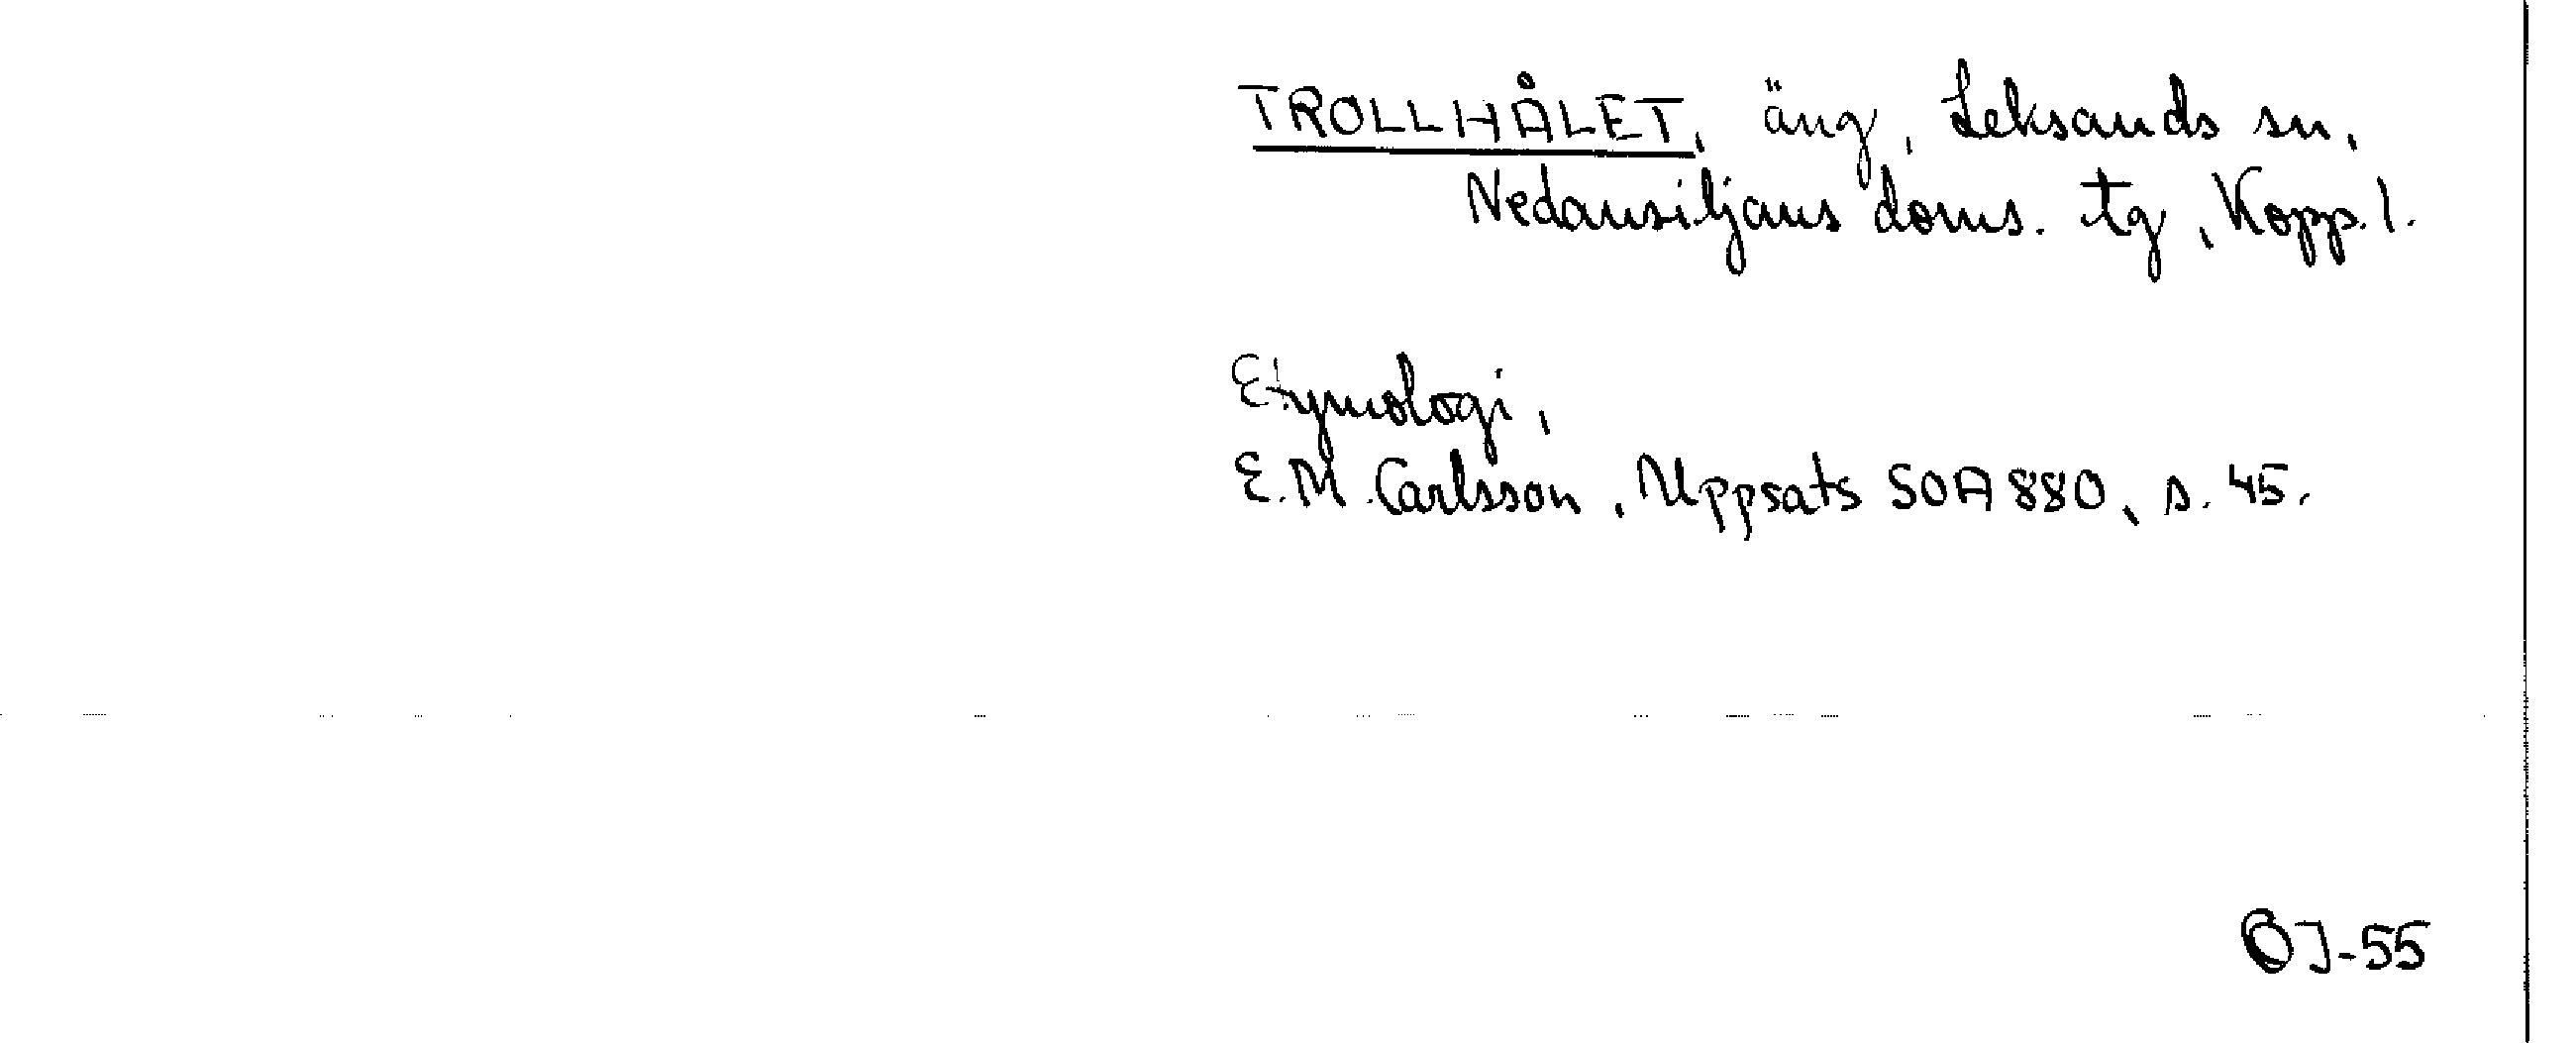 TROLLHÅLET, äng, Leksands sn,
Nedansiljans doms. tg, Kopp. l.
Etymologi,
E.M. Carlsson, Uppsats SOA 880, s. 45.
OJ-55